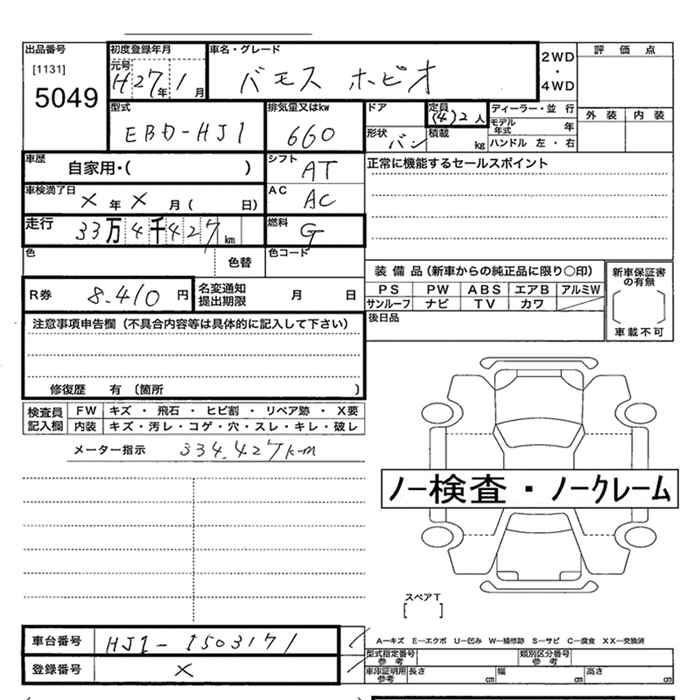 出品番号
[1131]
5049
初度登録年月
元号
H27年1月
車名・グレード
バモス ホビオ
2WD
・
4WD
評価点
外装 内装
型式
EBD-HJ1
排気量又はkw
660
ドア
形状 バン
定員
(4)2人
積載 kg
ディーラー・並行
モデル年式 年
ハンドル 左・右
車歴
自家用・( )
シフト
AT
正常に機能するセールスポイント
車検満了日
× 年 × 月( 日)
AC
AC
走行
33万4千427km
燃料
G
色
色替
色コード
R券 8.410円
名変通知
提出期限 月 日
装備品(新車からの純正品に限り○印)
PS PW ABS エアB アルミW
サンルーフ ナビ TV カワ
新車保証書
の有無
車載不可
後日品
注意事項申告欄(不具合内容等は具体的に記入して下さい)
修復歴 有 (箇所 )
検査員
記入欄
FW キズ・飛石・ヒビ割・リペア跡・X要
内装 キズ・汚レ・コゲ・穴・スレ・キレ・破レ
メーター指示 334.427km
ノー検査・ノークレーム
スペアT
[ ]
車台番号 HJ1-1503171
登録番号 ×
A−キズ E−エクボ U−凹み W−補修跡 S−サビ C−腐食 XX−交換済
型式指定番号
参考
類別区分番号
参考
車庫証明用
参考
長さ cm 幅 cm 高さ cm